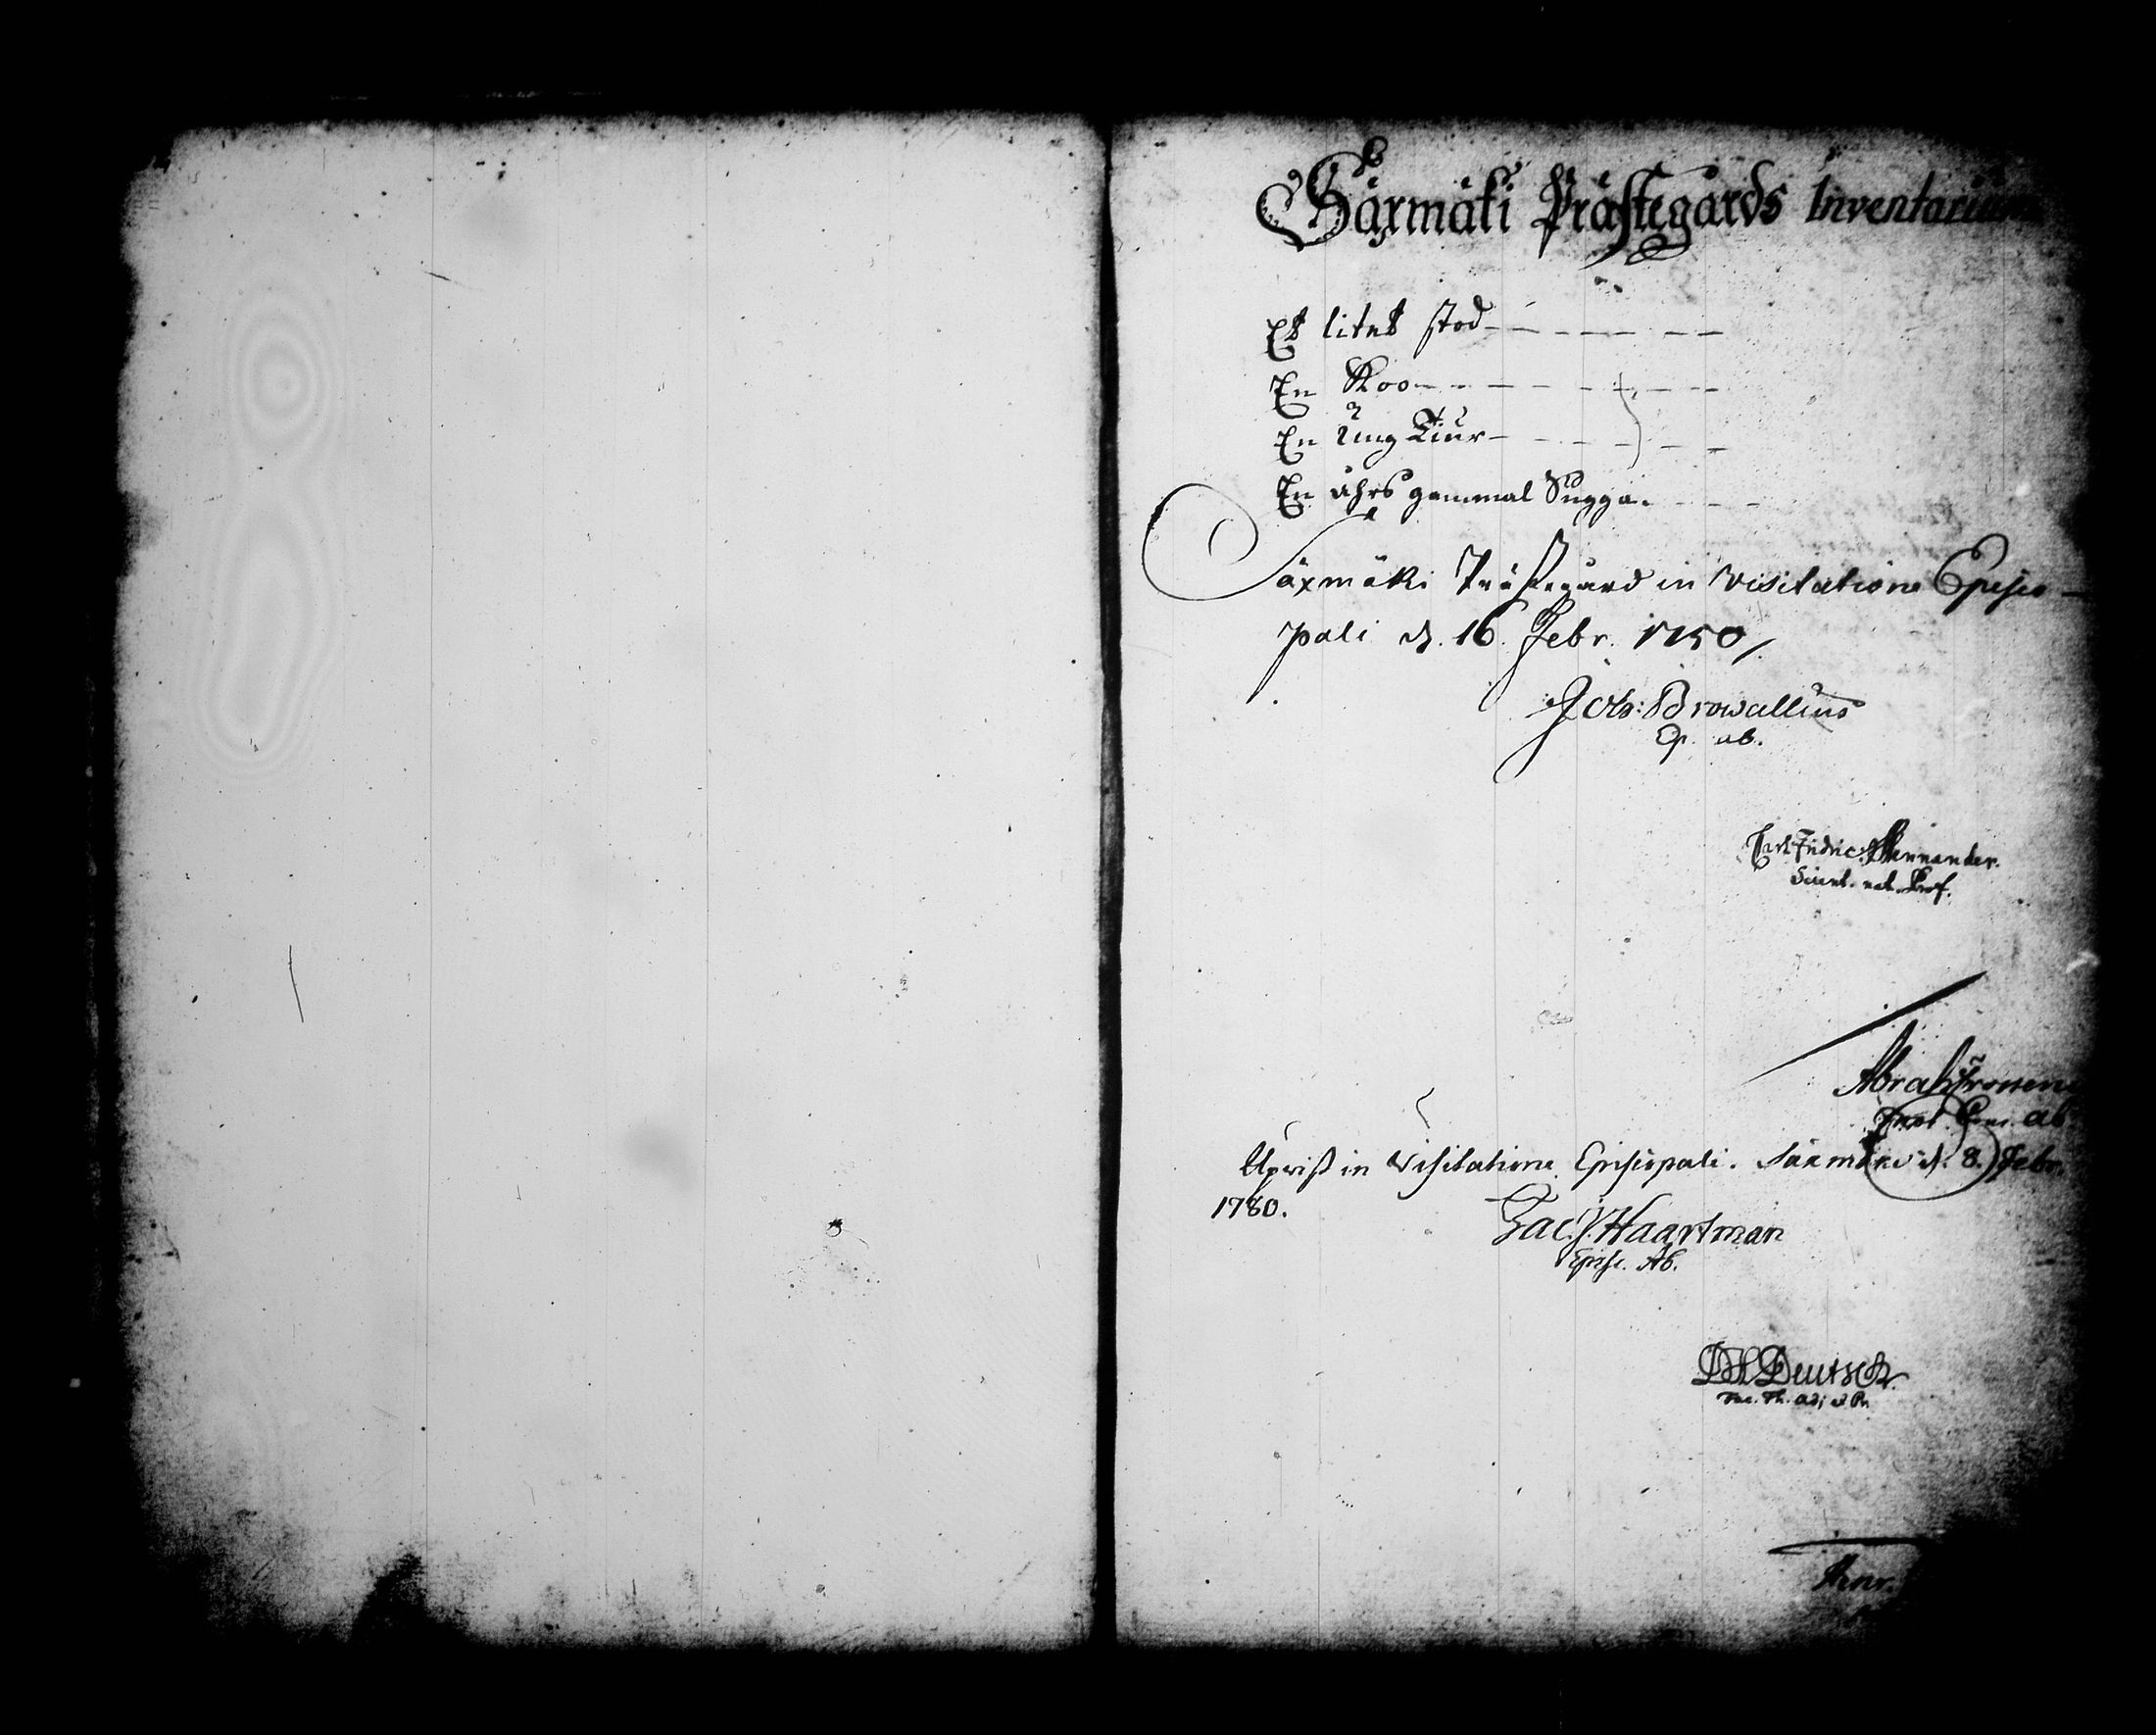 Säxmäki Prästegårds Inventarium
Et litet stod
En Koo
En Ung Tiur
En åhrs gammal Sugga
Säxmäki Prästegård in Visitatione Episco-
pali d. 16. Febr. 1750
Joh: Browallius
Ep. ab.
Carl Fridric Mennander.
Scient. nat. Prof.
Abrah
ab
Upvist in Visitatione Episcopali. Säxmäki d. 8. Febr.
1780.
Jac. J. Haartman
Episc. Ab.
DH Deutsch
Fac. Th. Adj et Pr.